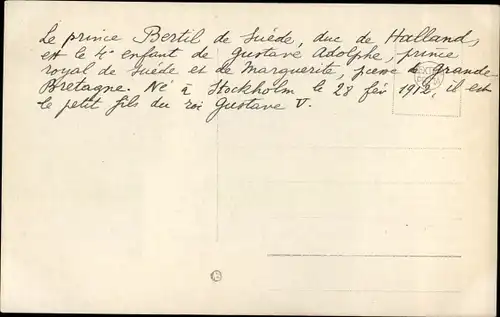 Le prince Bertil de Suède, duc de Halland,
est le 4e enfant de Gustave Adolphe, prince
royal de Suède et de Marguerite, pcesse de Grande-
Bretagne. Né à Stockholm le 28 fév 1912, il est
le petit fils du roi Gustave V.